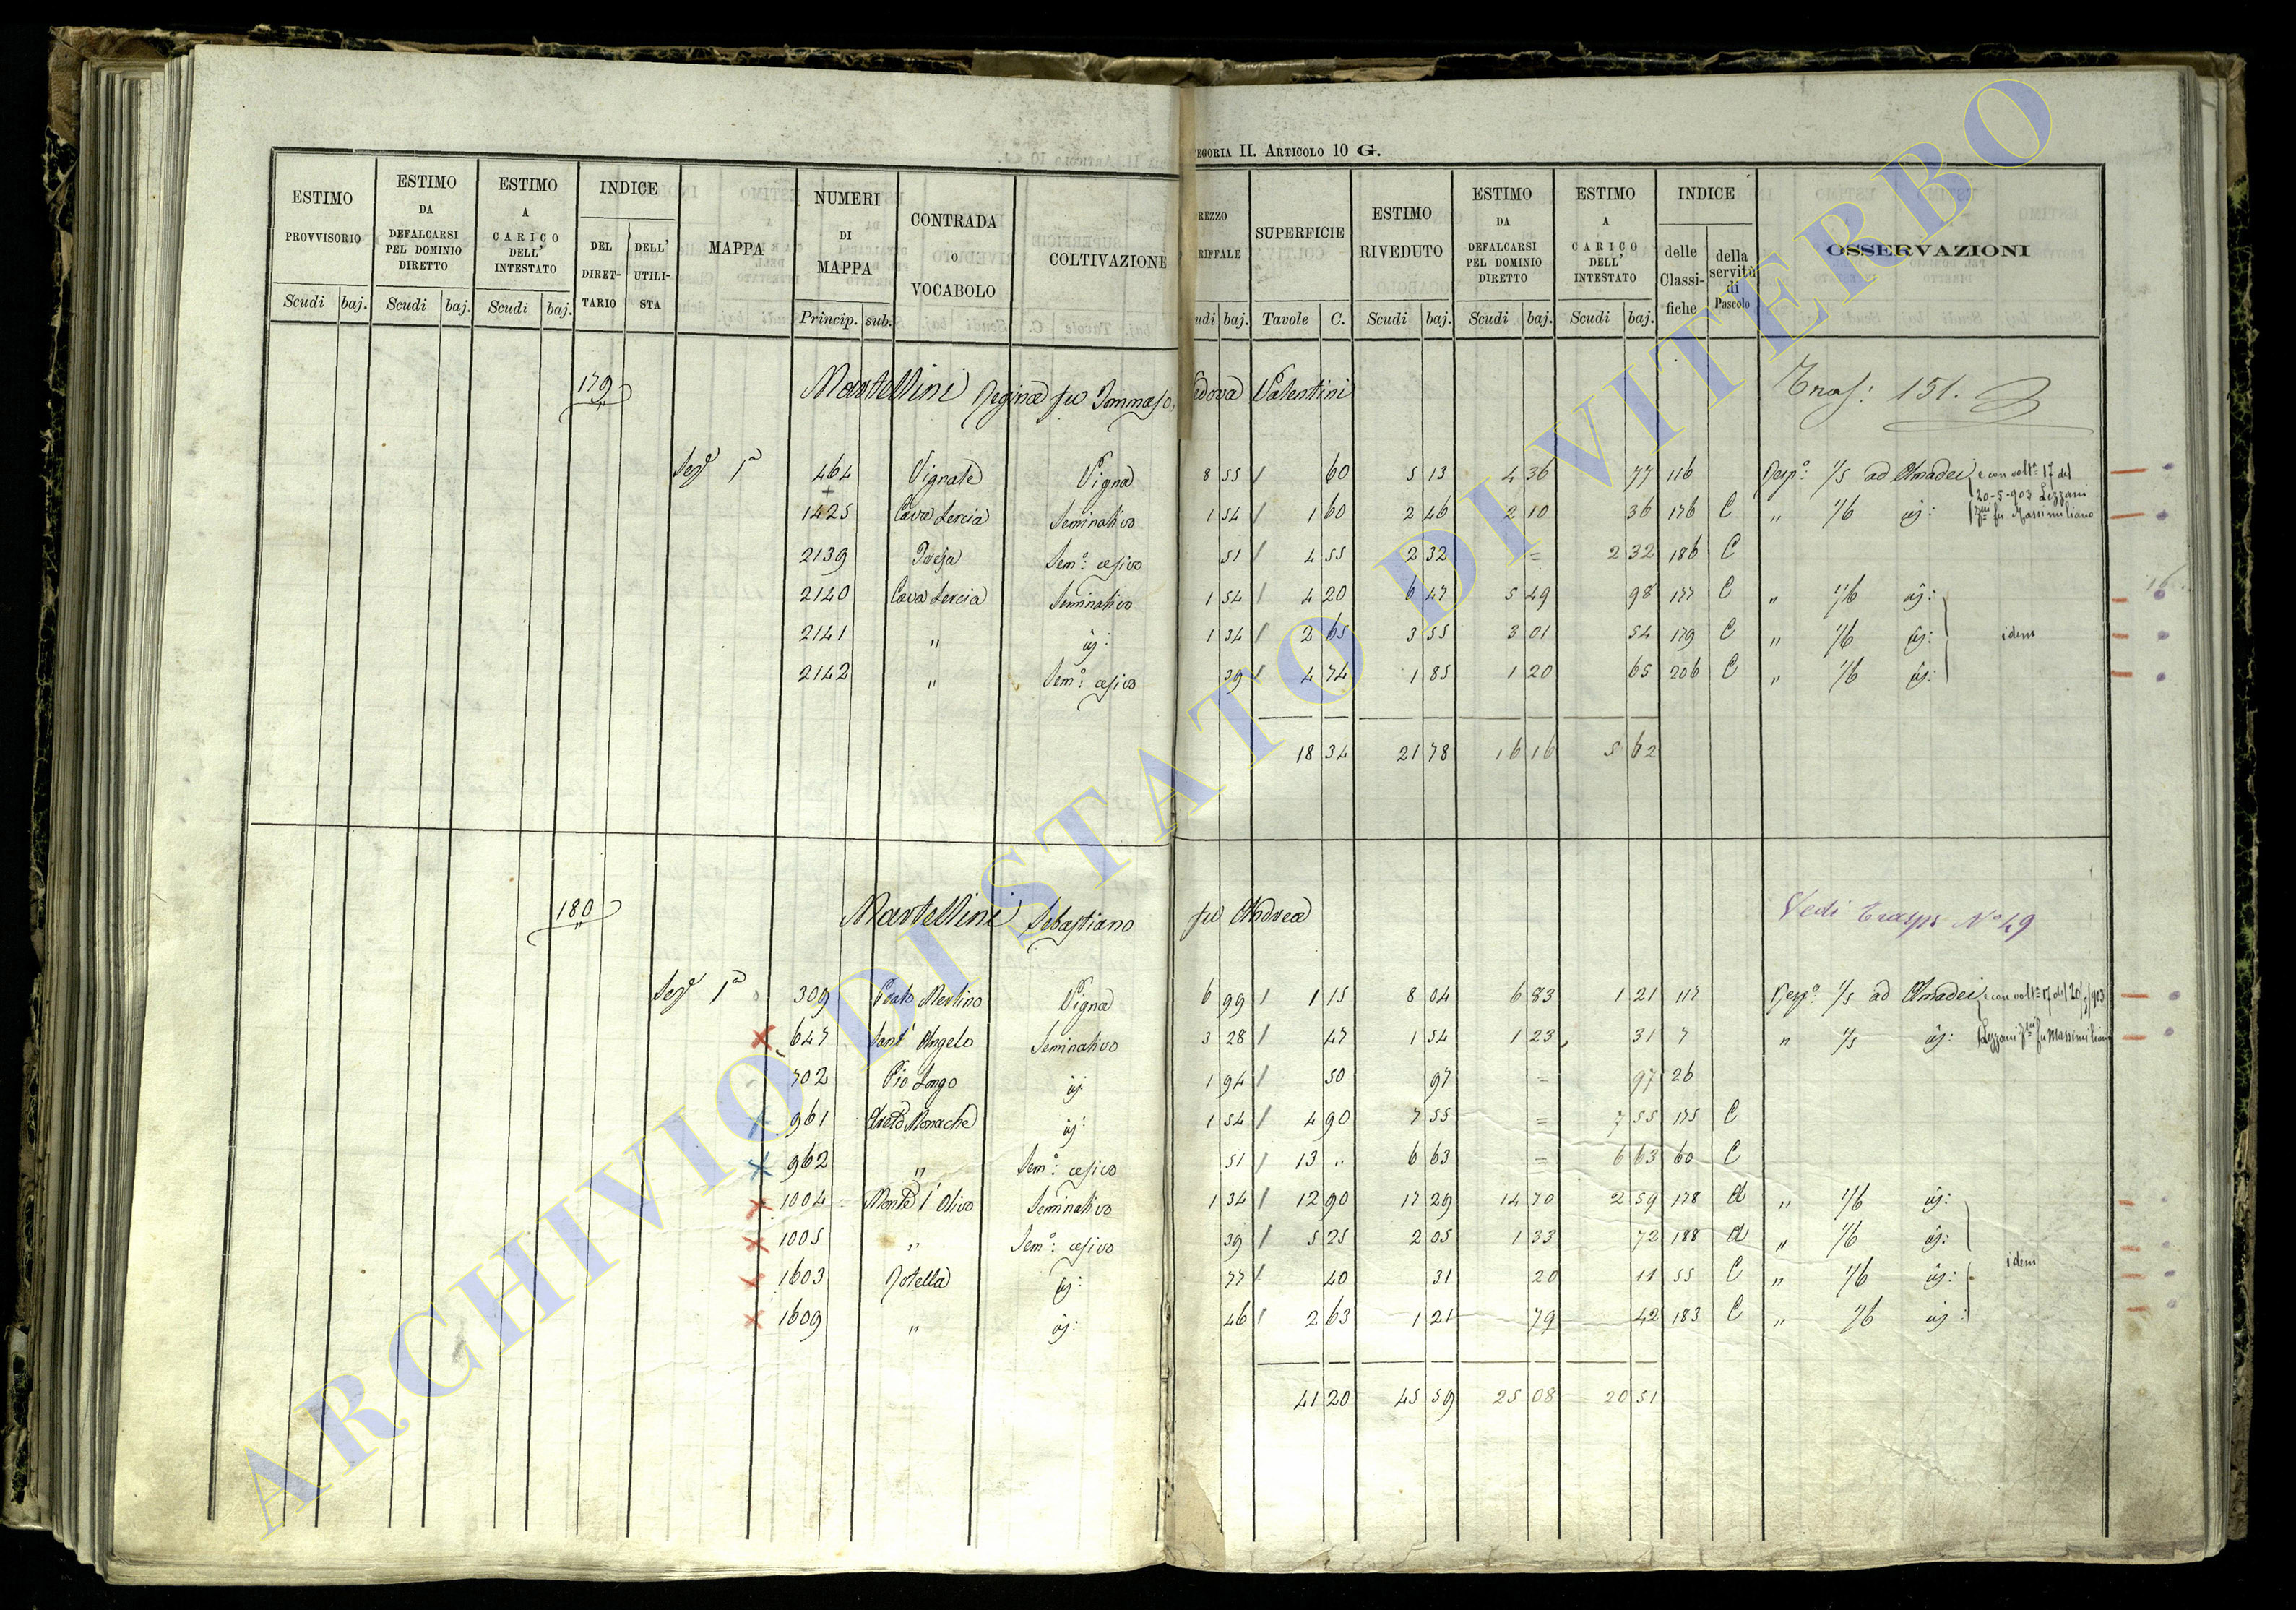 EGORIA II. ARTICOLO 10 G.
ESTIMO PROVVISORIO Scudi baj. ESTIMO DA DEFALCARSI PEL DOMINIO DIRETTO Scudi baj. ESTIMO A CARICO DELL' INTESTATO Scudi baj. INDICE DEL DIRET-TARIO DELL' UTILI-STA MAPPA NUMERI DI MAPPA Princip. sub. CONTRADA O VOCABOLO COLTIVAZIONE REZZO RIFFALE udi baj. SUPERFICIE Tavole C. ESTIMO RIVEDUTO Scudi baj. ESTIMO DA DEFALCARSI PEL DOMINIO DIRETTO Scudi baj. ESTIMO A CARICO DELL' INTESTATO Scudi baj. INDICE delle Classi-fiche della servitù di Pascolo OSSERVAZIONI
179 Martellini Regina fu Tommaso, edova Valentini Tras: 151.
Sez.e 1a 464 Vignale Vigna 8 55 / 60 5 13 4 36 77 116 Resp.o 1/5 ad Amadei e con volt.a 17 del
20-5-903 Lezzani
+
1425 Cava Lercia Seminativo 1 54 / 1 60 2 46 2 10 36 176 C " 1/6 id: fu Massimiliano
2139 Sem.o cesivo 51 / 4 55 2 32 = 2 32 186 C
2140 Cava Lercia Seminativo 1 54 / 4 20 6 47 5 49 98 177 C " 1/6 id: 16
2141 " id: 1 34 / 2 65 3 55 3 01 54 179 C " 1/6 id: idem
2142 " Sem.o cesivo 39 / 4 74 1 85 1 20 65 206 C " 1/6 id:
18 34 21 78 16 16 5 62
180 Martellini Sebastiano fu Andrea Vedi Trasp. No 49
Sez.e 1a 309 Merlino Vigna 6 99 / 1 15 8 04 6 83 1 21 117 Resp.o 1/5 ad Amadei e con volt.a 17 del 20/5/903
647 Sant' Angelo Seminativo 3 28 / 47 1 54 1 23 31 7 " 1/5 id: Lezzani fu Massimiliano
702 Pio Longo id: 1 94 / 50 97 = 97 26
961 Monache id: 1 54 / 4 90 7 55 = 7 55 175 C
962 " Sem.o cesivo 51 / 13 " 6 63 = 6 63 60 C
1004 Monte l'Olivo Seminativo 1 34 / 12 90 17 29 14 70 2 59 178 A " 1/6 id:
1005 " Sem.o cesivo 39 / 5 25 2 05 1 33 72 188 A " 1/6 id:
idem
1603 Rotella id: 77 / 40 31 20 11 55 C " 1/6 id:
1609 " id: 46 / 2 63 1 21 79 42 183 C " 1/6 id:
41 20 45 59 25 08 20 51
ARCHIVIO DI STATO DI VITERBO